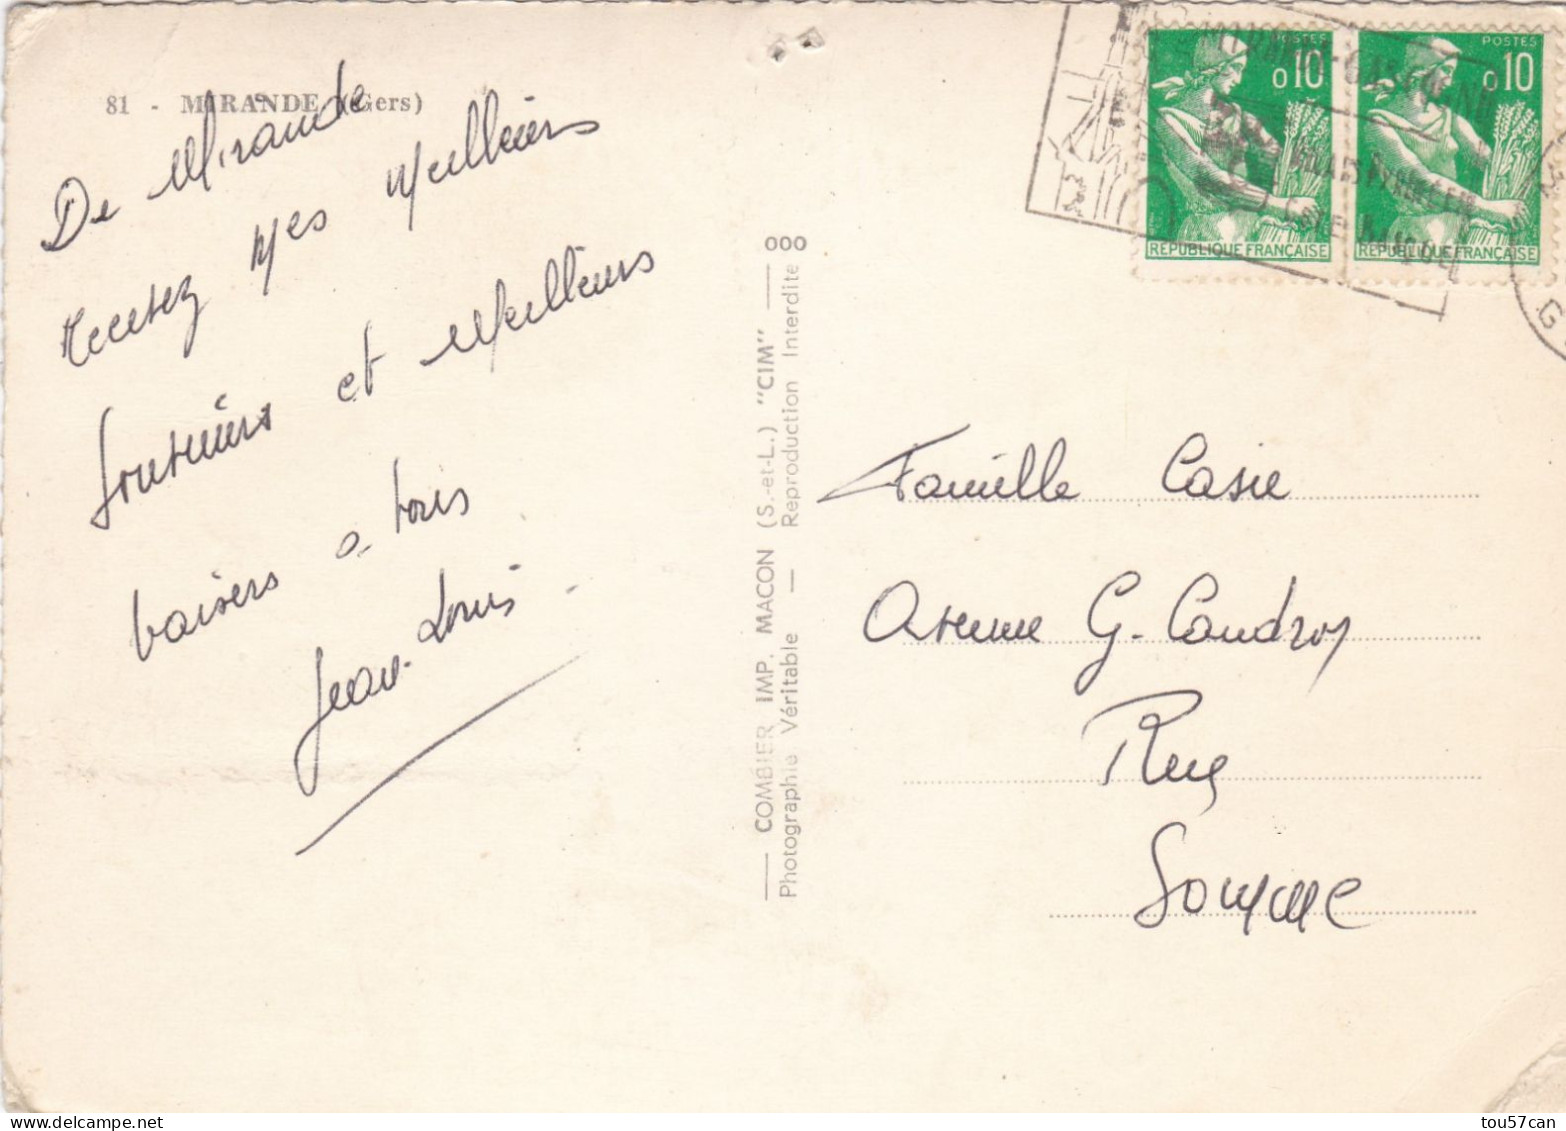 81 - MIRANDE (Gers)
De Mirande
recevez mes meilleurs
souvenirs et meilleurs
baisers a tous
Jean-Louis
COMBIER IMP. MACON (S.-et-L.) "CIM"
Photographie Véritable — Reproduction Interdite
000
POSTES
0,10
REPUBLIQUE FRANÇAISE
POSTES
0,10
REPUBLIQUE FRANÇAISE
MIRANDE-GASCOGNE
G
Famille Casie
Avenue G. Caudron
Rue
Somme
tou57can